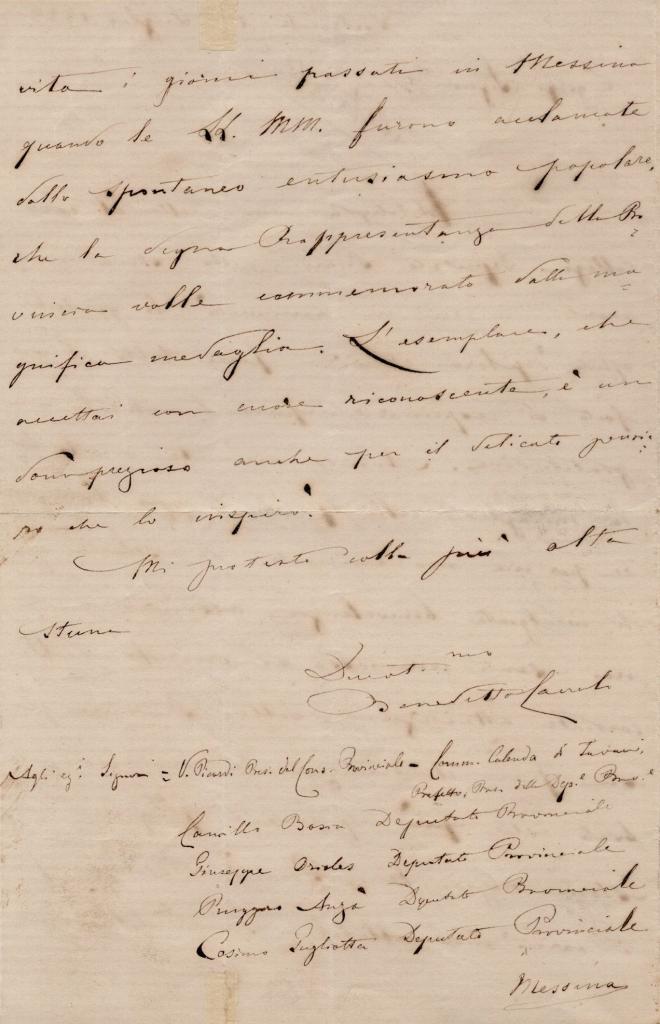 vita i giorni passati in Messina
quando le LL. MM. furono acclamate
dallo spontaneo entusiasmo popolare,
che la degna Rappresentanza della Pro=
vincia volle commemorato dalla ma=
gnifica medaglia. L'esemplare, che
accettai con cuore riconoscente, è un
dono prezioso anche per il delicato pensie=
ro che lo inspirò.
Mi protesto colla più alta
stima
Devotmo
Benedetto Cairoli
Agli eg.i Signori = V. Picardi Pres. del Cons. Provinciale - Comm. Calenda di Tavani,
Prefetto, Pres. della Dep.e Prov.e
Camillo Deputato Provinciale
Giuseppe Orioles Deputato Provinciale
Ruggero Anzà Deputato Provinciale
Cosimo Pugliatta Deputato Provinciale
Messina